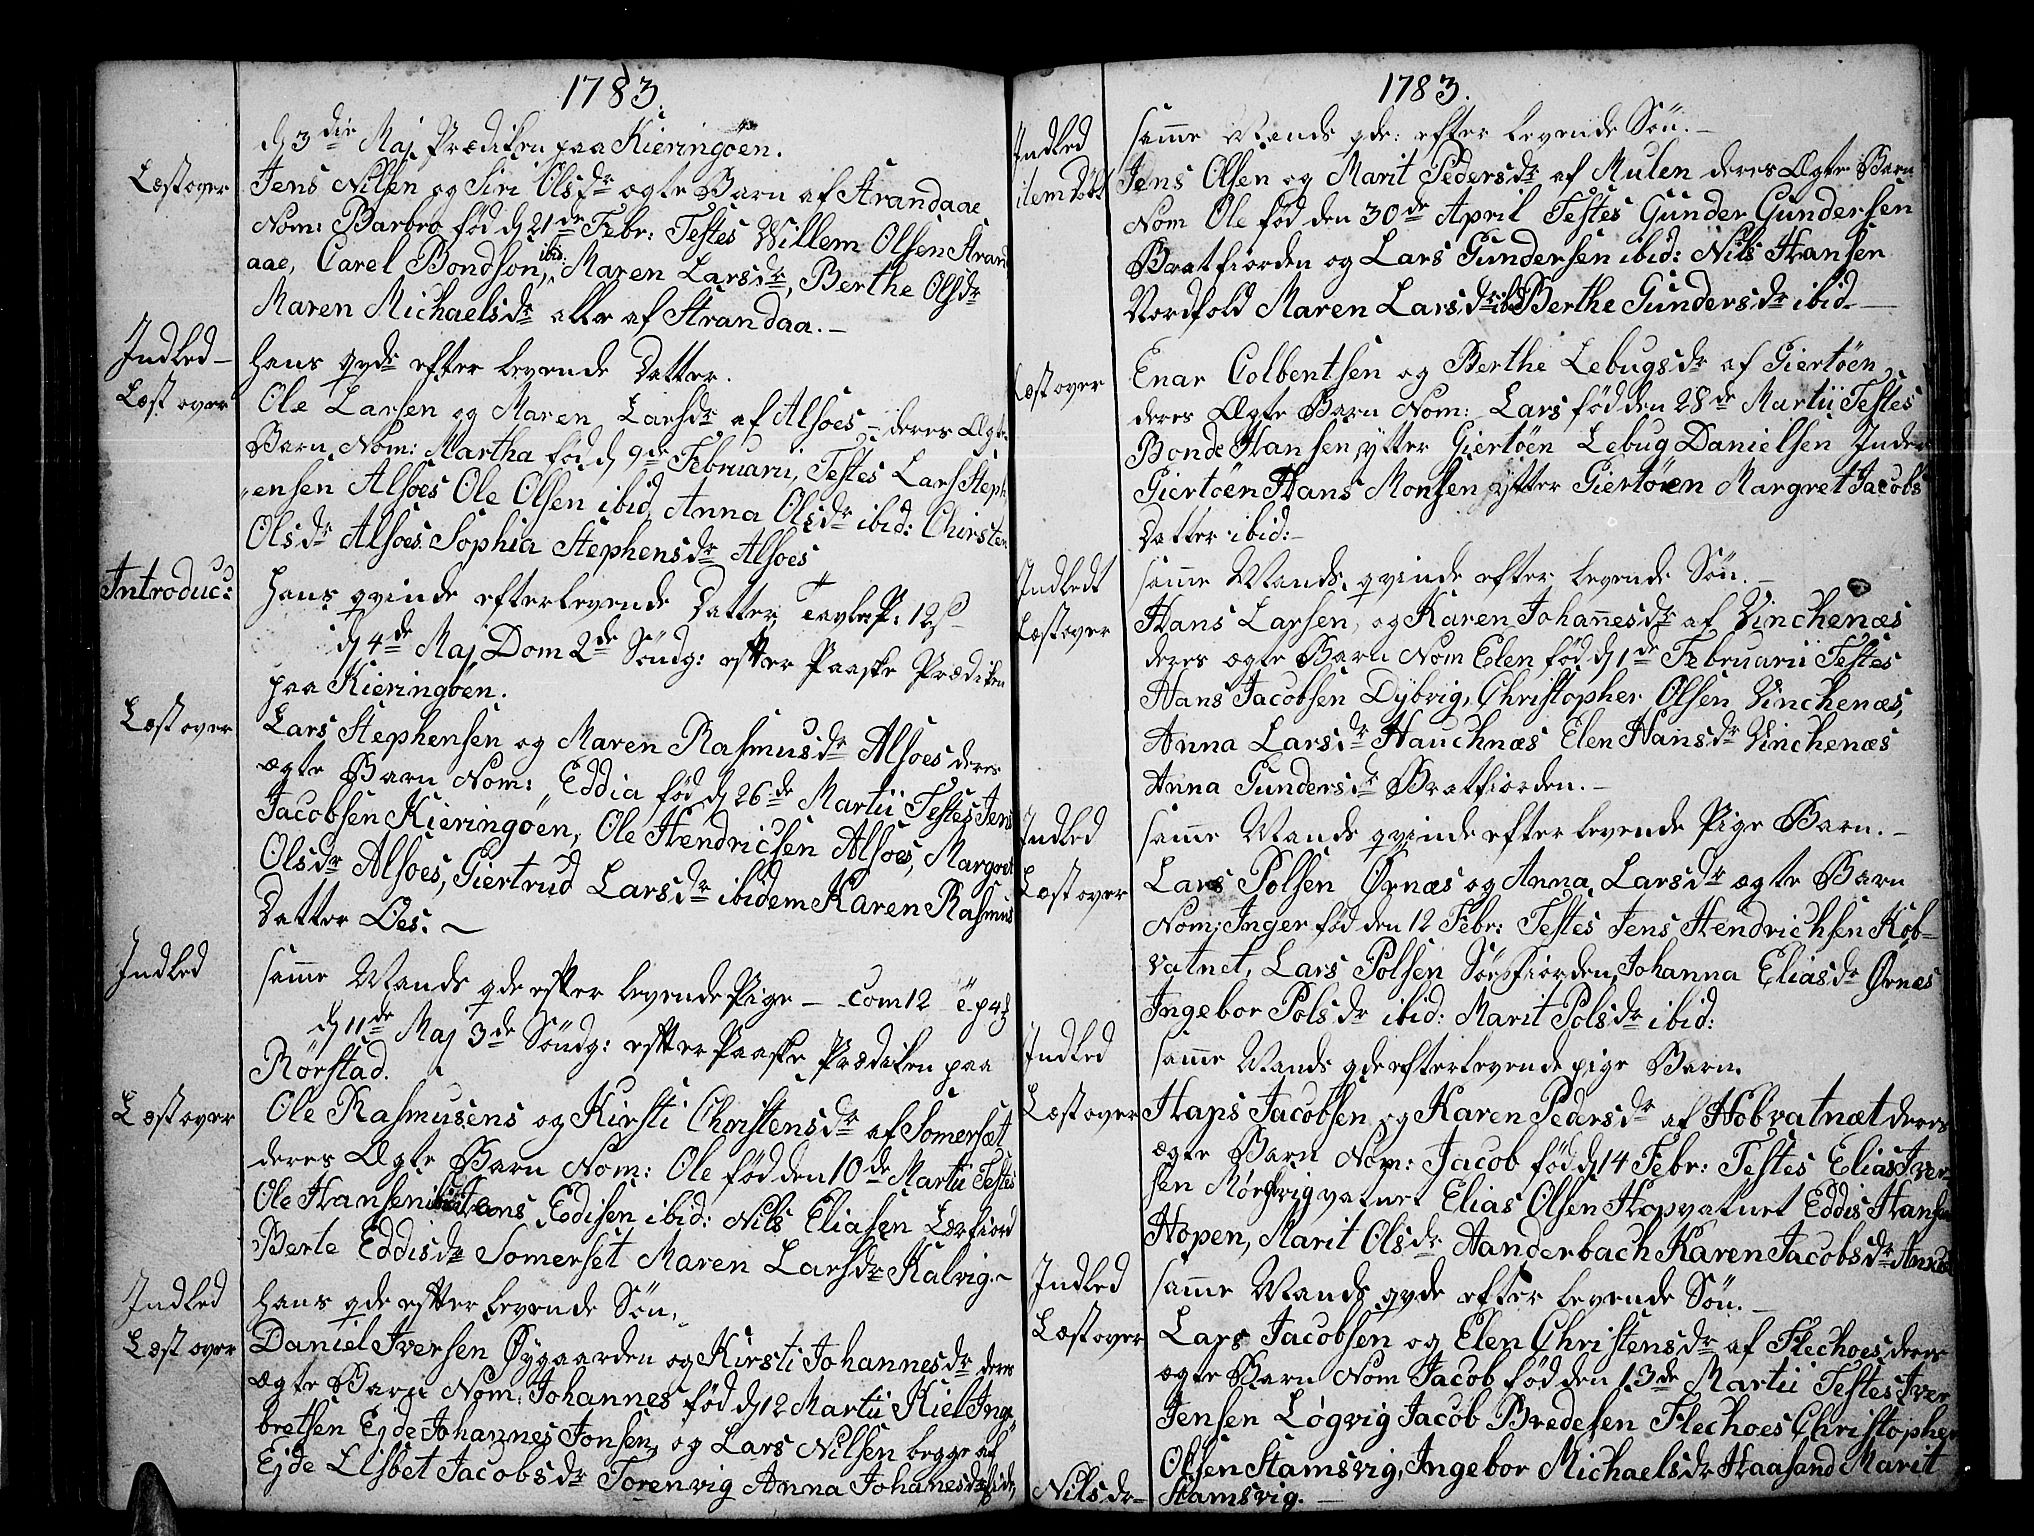 1783.
d 3die Maj Prædiken paa Kieringöen.
Læst over Jens Nilsen og Siri Olsdr ægte Barn af Strandaae
Nom: Barbro fød d 21de Febr: Testes Willem Olsen Strand
aae, Carel Bondson ibid:, Maren Larsdr, Berthe Olsdr
Maren Michaelsdr alle af Strandaa.—
Indled— hans qvde efter levende Datter.
Læst over Ole Larsen og Maren Larsdr af Alsoes — deres Ægte
Barn Nom: Martha fød d 9de Februarii, Testes Lars Steph
ensen Alsoes Ole Olsen ibid, Anna Olsdr ibid: Chirsten
Olsdr Alsoes Sophia Stephensdr Alsoes
Introduc: hans qvinde efterlevende Datter, Tavlep: 12
d 4de Maj Dom 2de Söndg: efter Paaske Prædiken
paa Kieringöen.
Læst over Lars Stephensen og Maren Rasmusdr Alsoes deres
ægte Barn Nom: Eddia fød d 26de Martii Testes Jens
Jacobsen Kieringöen, Ole Hendricsen Alsoes, Margret
Olsdr Alsoes, Giertrud Larsdr ibidem Karen Rasmus
Datter Oes. ~
Indled samme Mands qde efter levende Pige — Com 12
d 11de Maj 3de Söndg: efter Paaske Prædiken paa
Rörstad.
Læst over Ole Rasmusens og Kirsti Christensdr af Somersæt
deres Ægte Barn Nom: Ole fød den 10de Martii Testes
Ole Hansen ibid Jens Edisen ibid: Nils Eliasen Lerfiord
Berte Eddisdr Somerset Maren Larsdr Kalvig.~
Indled hans qde efter levende Sön.
Læst over Daniel Iversen Øygaarden og Kirsti Johannesdr deres
ægte Barn Nom: Johannes fød d 12 Martii Kiel Inge
bretsen Ejde Johannes Jonsen, og Lars Nilsen begge af
Ejde Lisbet Jacobsdr Torenvig Anna Johanesdr
1783.
Indled samme Mands qde: efter levende Sön.—
item Döbt Jens Olsen og Marit Pedersdr af Mulen deres Ægte Barn
Nom Ole fød den 30de April Testes Gunder Gundersen
Bratfiorden og Lars Gundersen ibid: Nils Hansen
Nordfold Maren Larsdr ibid Berthe Gundersdr ibid—
Læst over Enar Colbentsen og Berthe Lebugsdr af Giertöen
deres Ægte Barn Nom: Lars fød den 28de Martii Testes
Bonde Hansen ytter Giertöen Lebug Danielsen Inder
Giertöen Hans Monsen ytter Giertöen Margret Jacobs
Datter ibid:—
Indledt samme Mands qvinde efter levende Sön.—
Læst over Hans Larsen, og Karen Johannesdr af Vinchenæs
deres ægte Barn Nom Elen fød d 1de Februarii Testes
Hans Jacobsen Dybvig, Christopher Olsen Vinchenæs,
Anna Larsdr Hauchnæs Elen Hansdr Vinchenæs
Anna Gundersdr Bratfiorden.—
Indled samme Mands qvinde efter levende Pige Barn.—
Læst over Lars Polsen Ørnæs og Anna Larsdr ægte Barn
Nom: Inger fød den 12 Febr: Testes Jens Hendrichsen Kob-
vatnet, Lars Polsen Sörfiorden, Johanna Eliasdr Ørnæs
Ingebor Polsdr ibid: Marit Polsdr ibid:
Indled samme Mands qde efterlevende pige Barn.
Læst over Hans Jacobsen og Karen Pedersdr af Hobvatnæt deres
ægte Barn Nom: Jacob fød d 14 Febr: Testes Elias Iver-
sen Mörchvigvatnet Elias Olsen Hopvatnet Eddis Hansen
Hopen, Marit Olsdr Aanderbach Karen Jacobsdr
Indled samme Mands qvde efter levende Sön.—
Læst over Lars Jacobsen og Elen Christensdr af Flechoes, deres
ægte Barn Nom Jacob fød den 13de Martii Testes Iver
Jensen Løgvig Jacob Bredesen Flechoes Christopher
Olsen Stamsvig, Ingebor Michaelsdr Haasand Marit
Nilsdr— Stamsvig.—